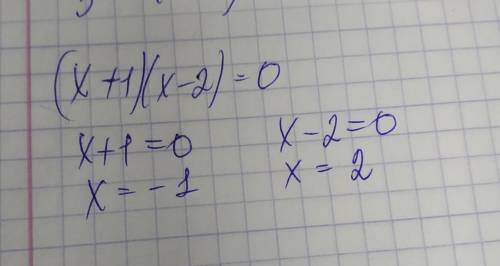 (x+1)(x-2)=0
x+1=0 x-2=0
x=-1 x=2